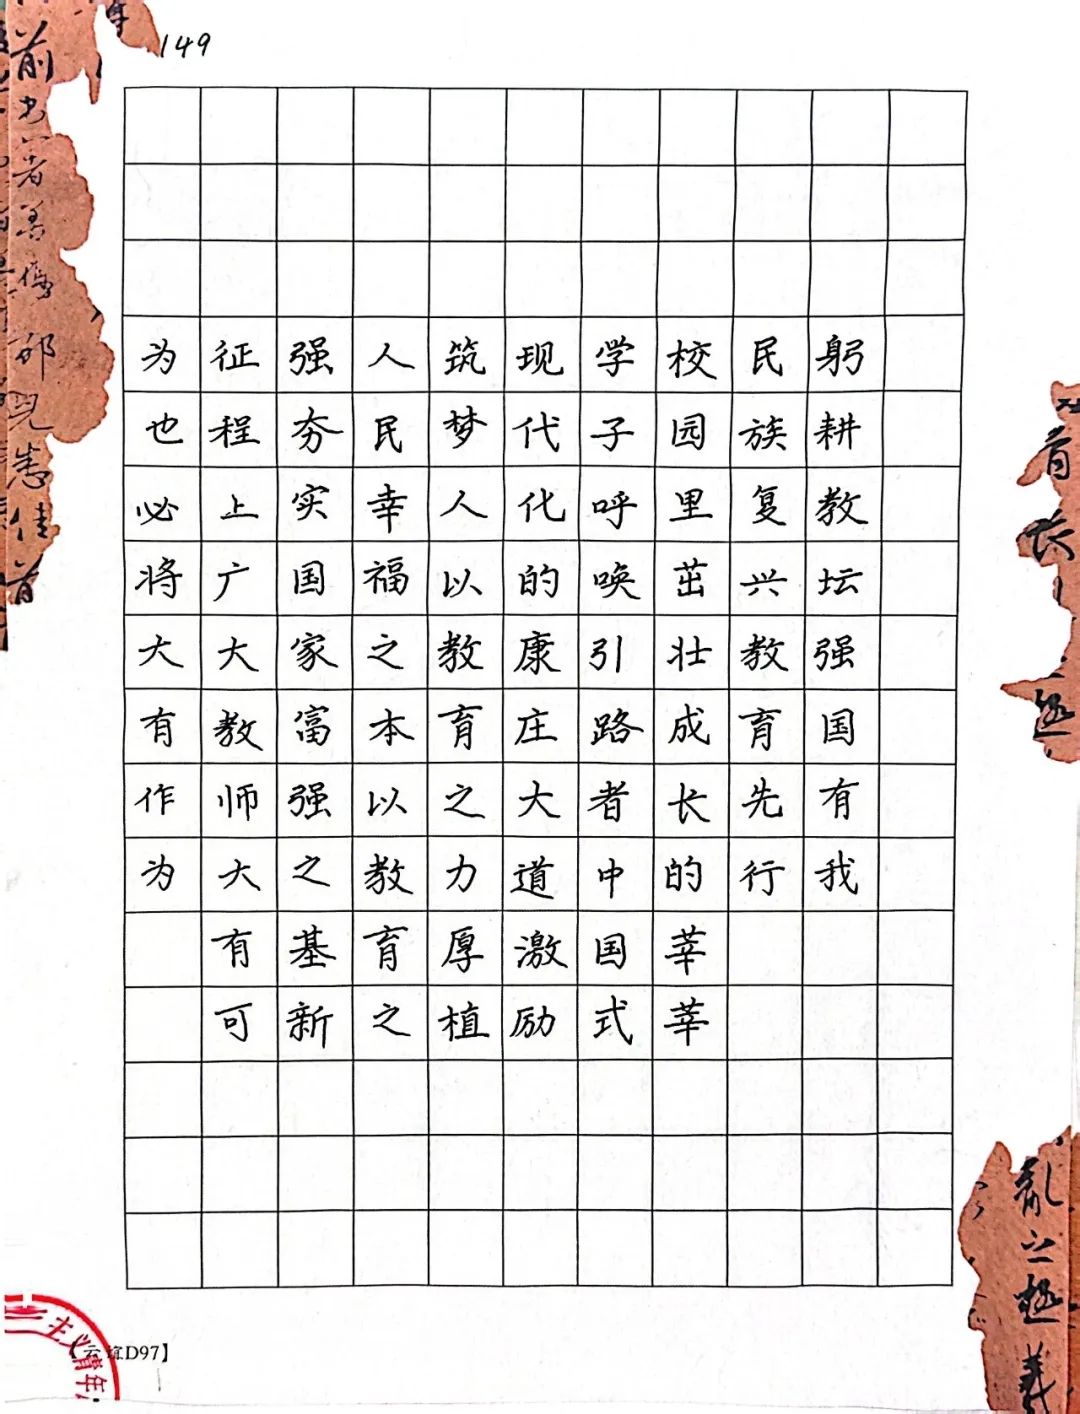 149
躬耕教坛强国有我
民族复兴教育先行
校园里茁壮成长的莘莘
学子呼唤引路者中国式
现代化的康庄大道激励
筑梦人以教育之力厚植
人民幸福之本以教育之
强夯实国家富强之基新
征程上广大教师大有可
为也必将大有作为
乱之极
主义青年
D97】